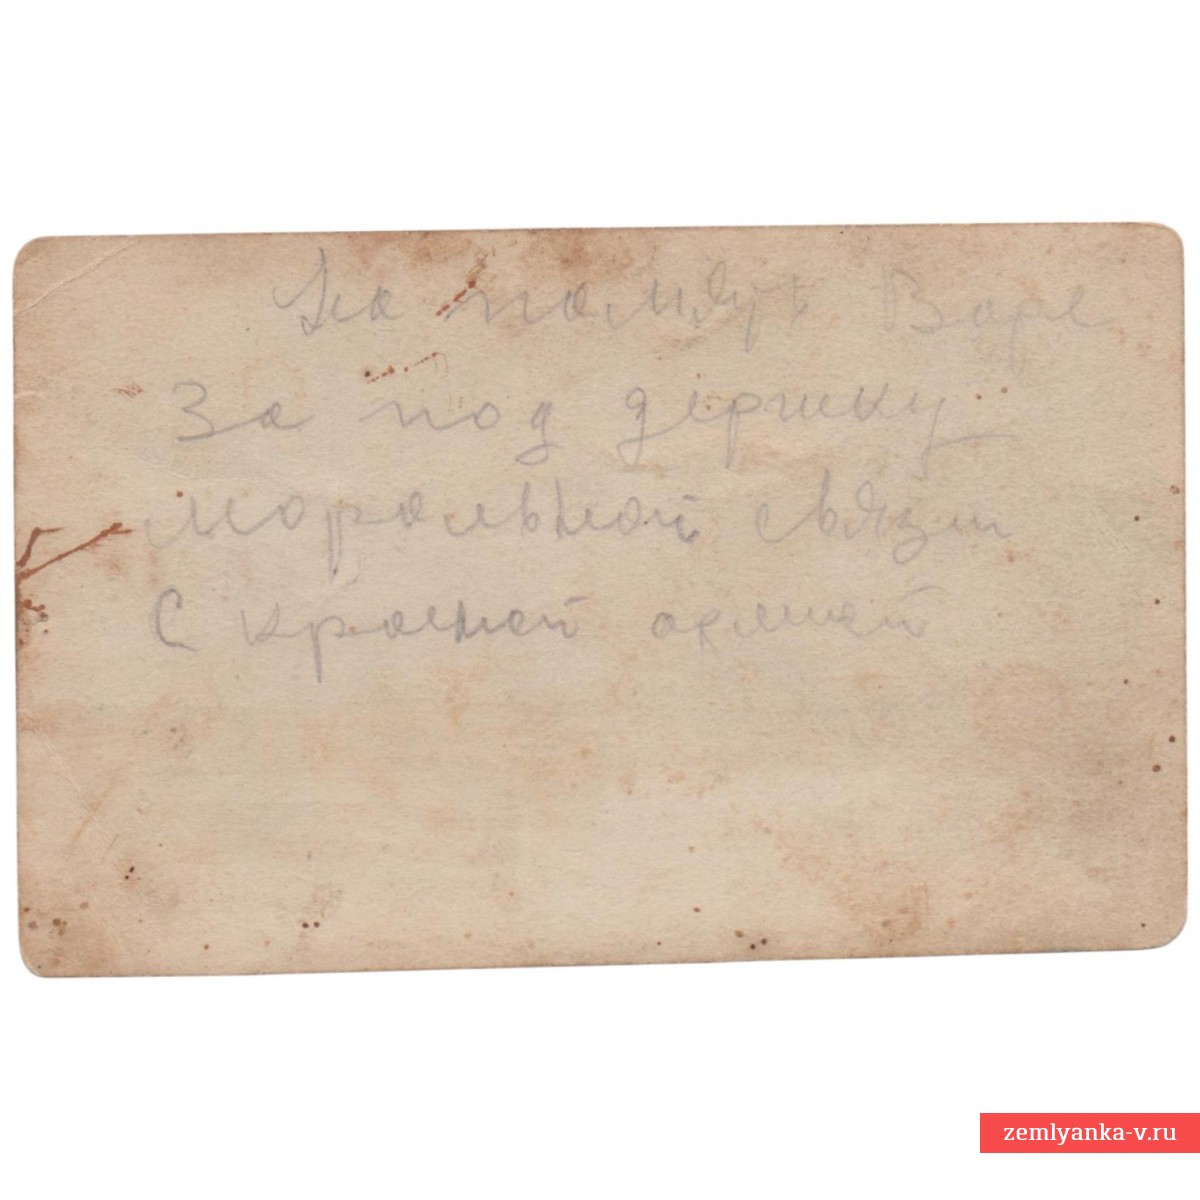 На память Варе
За под держку
моральной связи
с красной армей
zemlyanka-v.ru